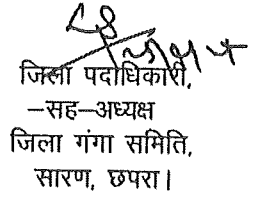 जिला पदाधिकारी,
–सह–अध्यक्ष
जिला गंगा समिति,
सारण, छपरा।